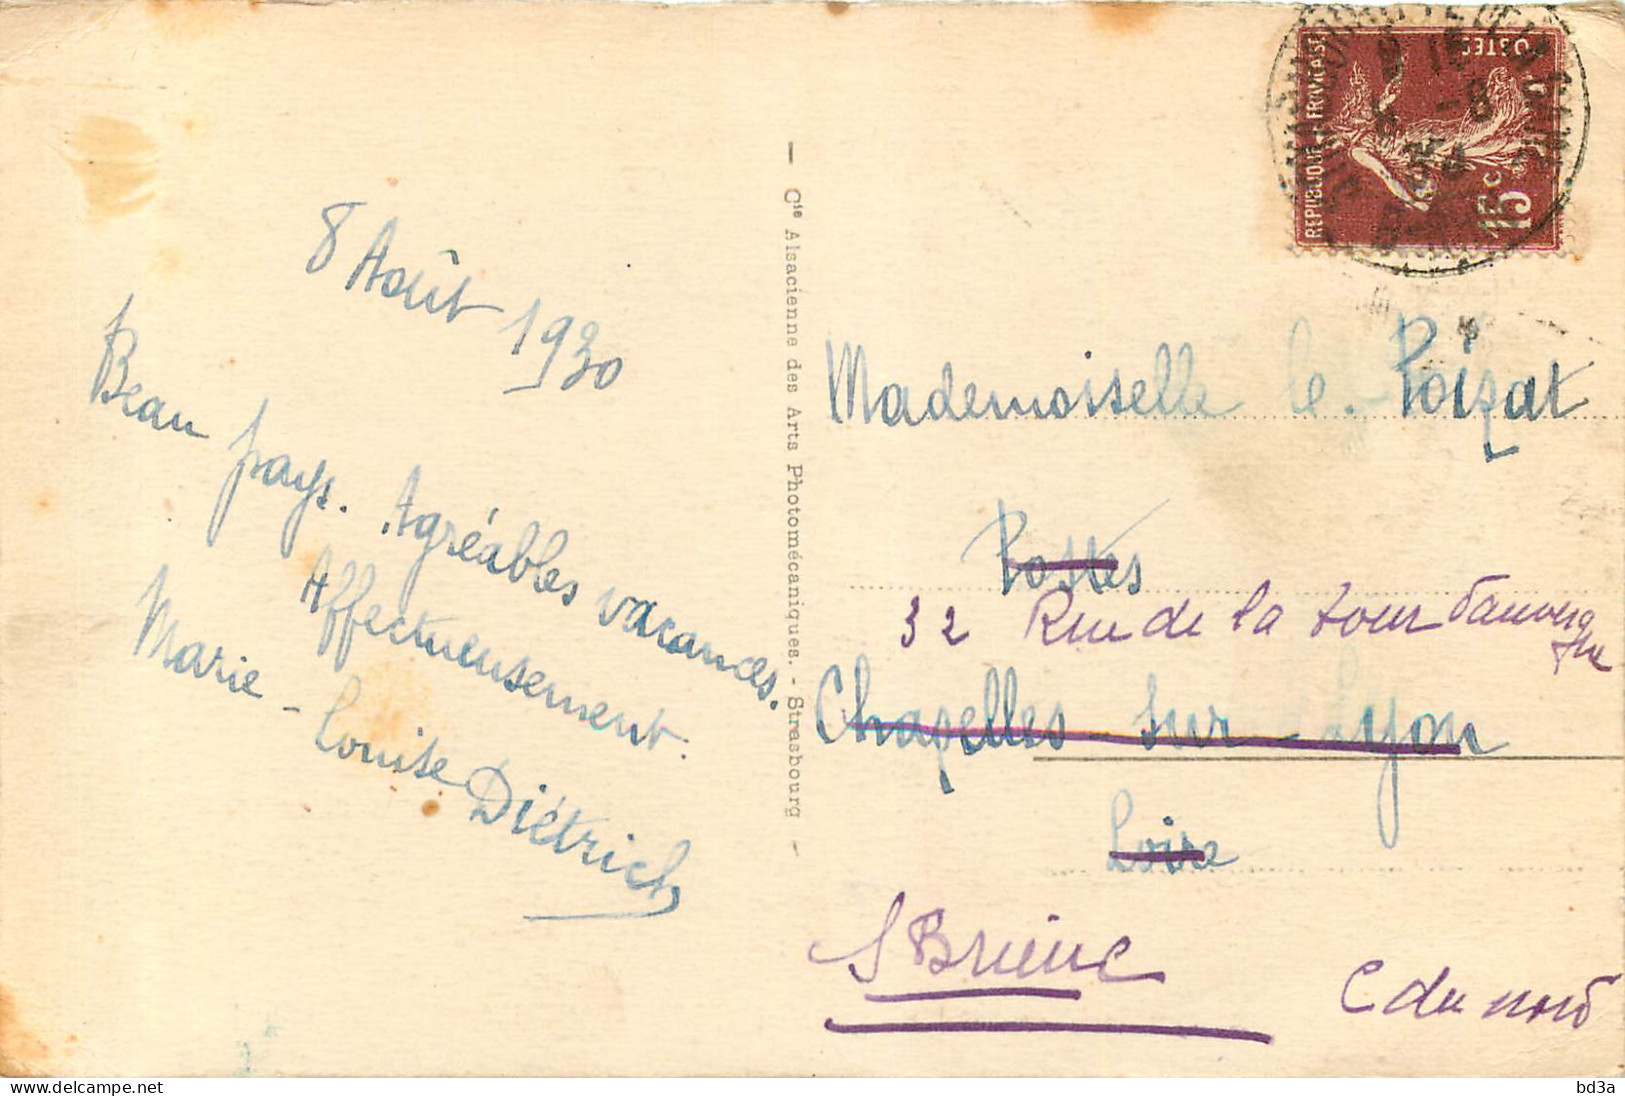 8 Août 1930
Beau pays. Agréables vacances.
Affectueusement.
Marie-Louise Diétrich
— Cie Alsacienne des Arts Photomécaniques. - Strasbourg —
REPUBLIQUE FRANÇAISE
POSTES
15c
Mademoiselle le Poizat
Postes
32 Rue de la tour d'auvergne
Chapelles-sur-Lyon
Loire
St Brieuc
C du nord
delcampe.net
bd3a